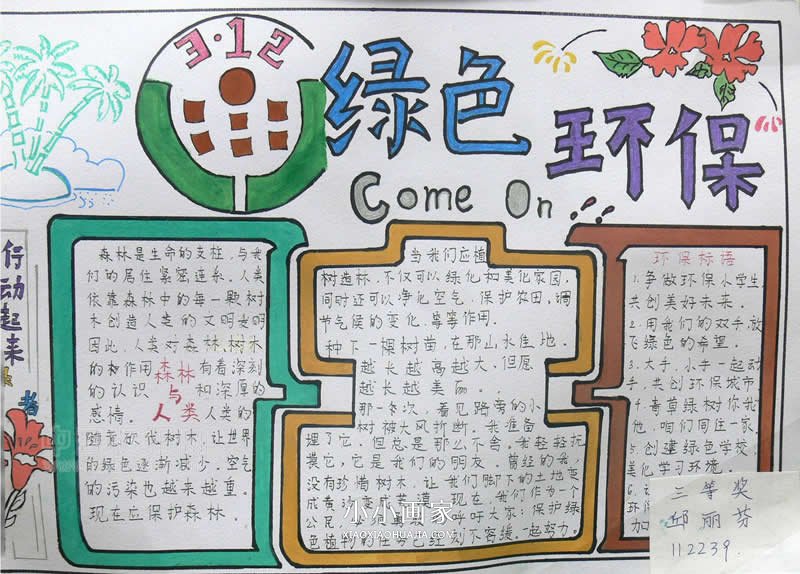 3·12
绿色
环保
Come On
行动起来
森林是生命的支柱，与我
们的居住紧密连系。人类
依靠森林中的每一颗树
木创造人类的文明发明
因此，人类对森林、树木
的和作用森林有着深刻
的认识与和深厚的
感情。人类人类的
随意砍伐树木，让世界
的绿色逐渐减少。空气
的污染也越来越重。
现在应保护森林。
当我们应植
树造林，不仅可以绿化和美化家园，
同时还可以净化空气，保护农田，调
节气候的变化，等等作用。
种下一棵树苗，在那山水佳地。
越长越高越大，但愿
越长越美丽。
那一次，看见路旁的小
树被大风折断。我准备
埋了它。但总是那么不舍。我轻轻抚
摸它，它是我们的朋友。曾经的我，
没有珍惜树木，让我们脚下的土地变
成黄沙变成荒漠。现在，我们作为一个
公民，呼吁大家：保护绿
色植物的任务已经刻不容缓。一起努力。
环保标语
1.争做环保小学生
共创美好未来。
2.用我们的双手，放
飞绿色的希望。
3.大手，小手一起动
手，共创环保城市
4.青草绿树你我
他，咱们同住一家
5.创建绿色学校，
美化学习环境。
6.
环保
加
三等奖
邱丽芬
112239.
小小画家
XIAOXIAOHUAJIA.COM